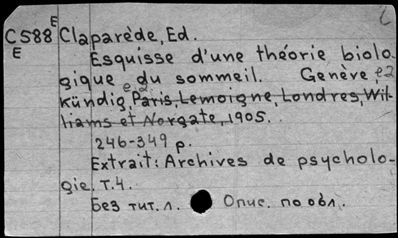 E
C588 Claparède, Ed.
E
Esquisse d'une théorie biolo-
gique du sommeil. Genève,
Kündig, Paris, Lemoigne, Londres, Wil-
liams et Norgate, 1905.
246-349 p.
Extrait: Archives de psycholo-
gie. T.4.
Без тит. л. Опис. по обл.